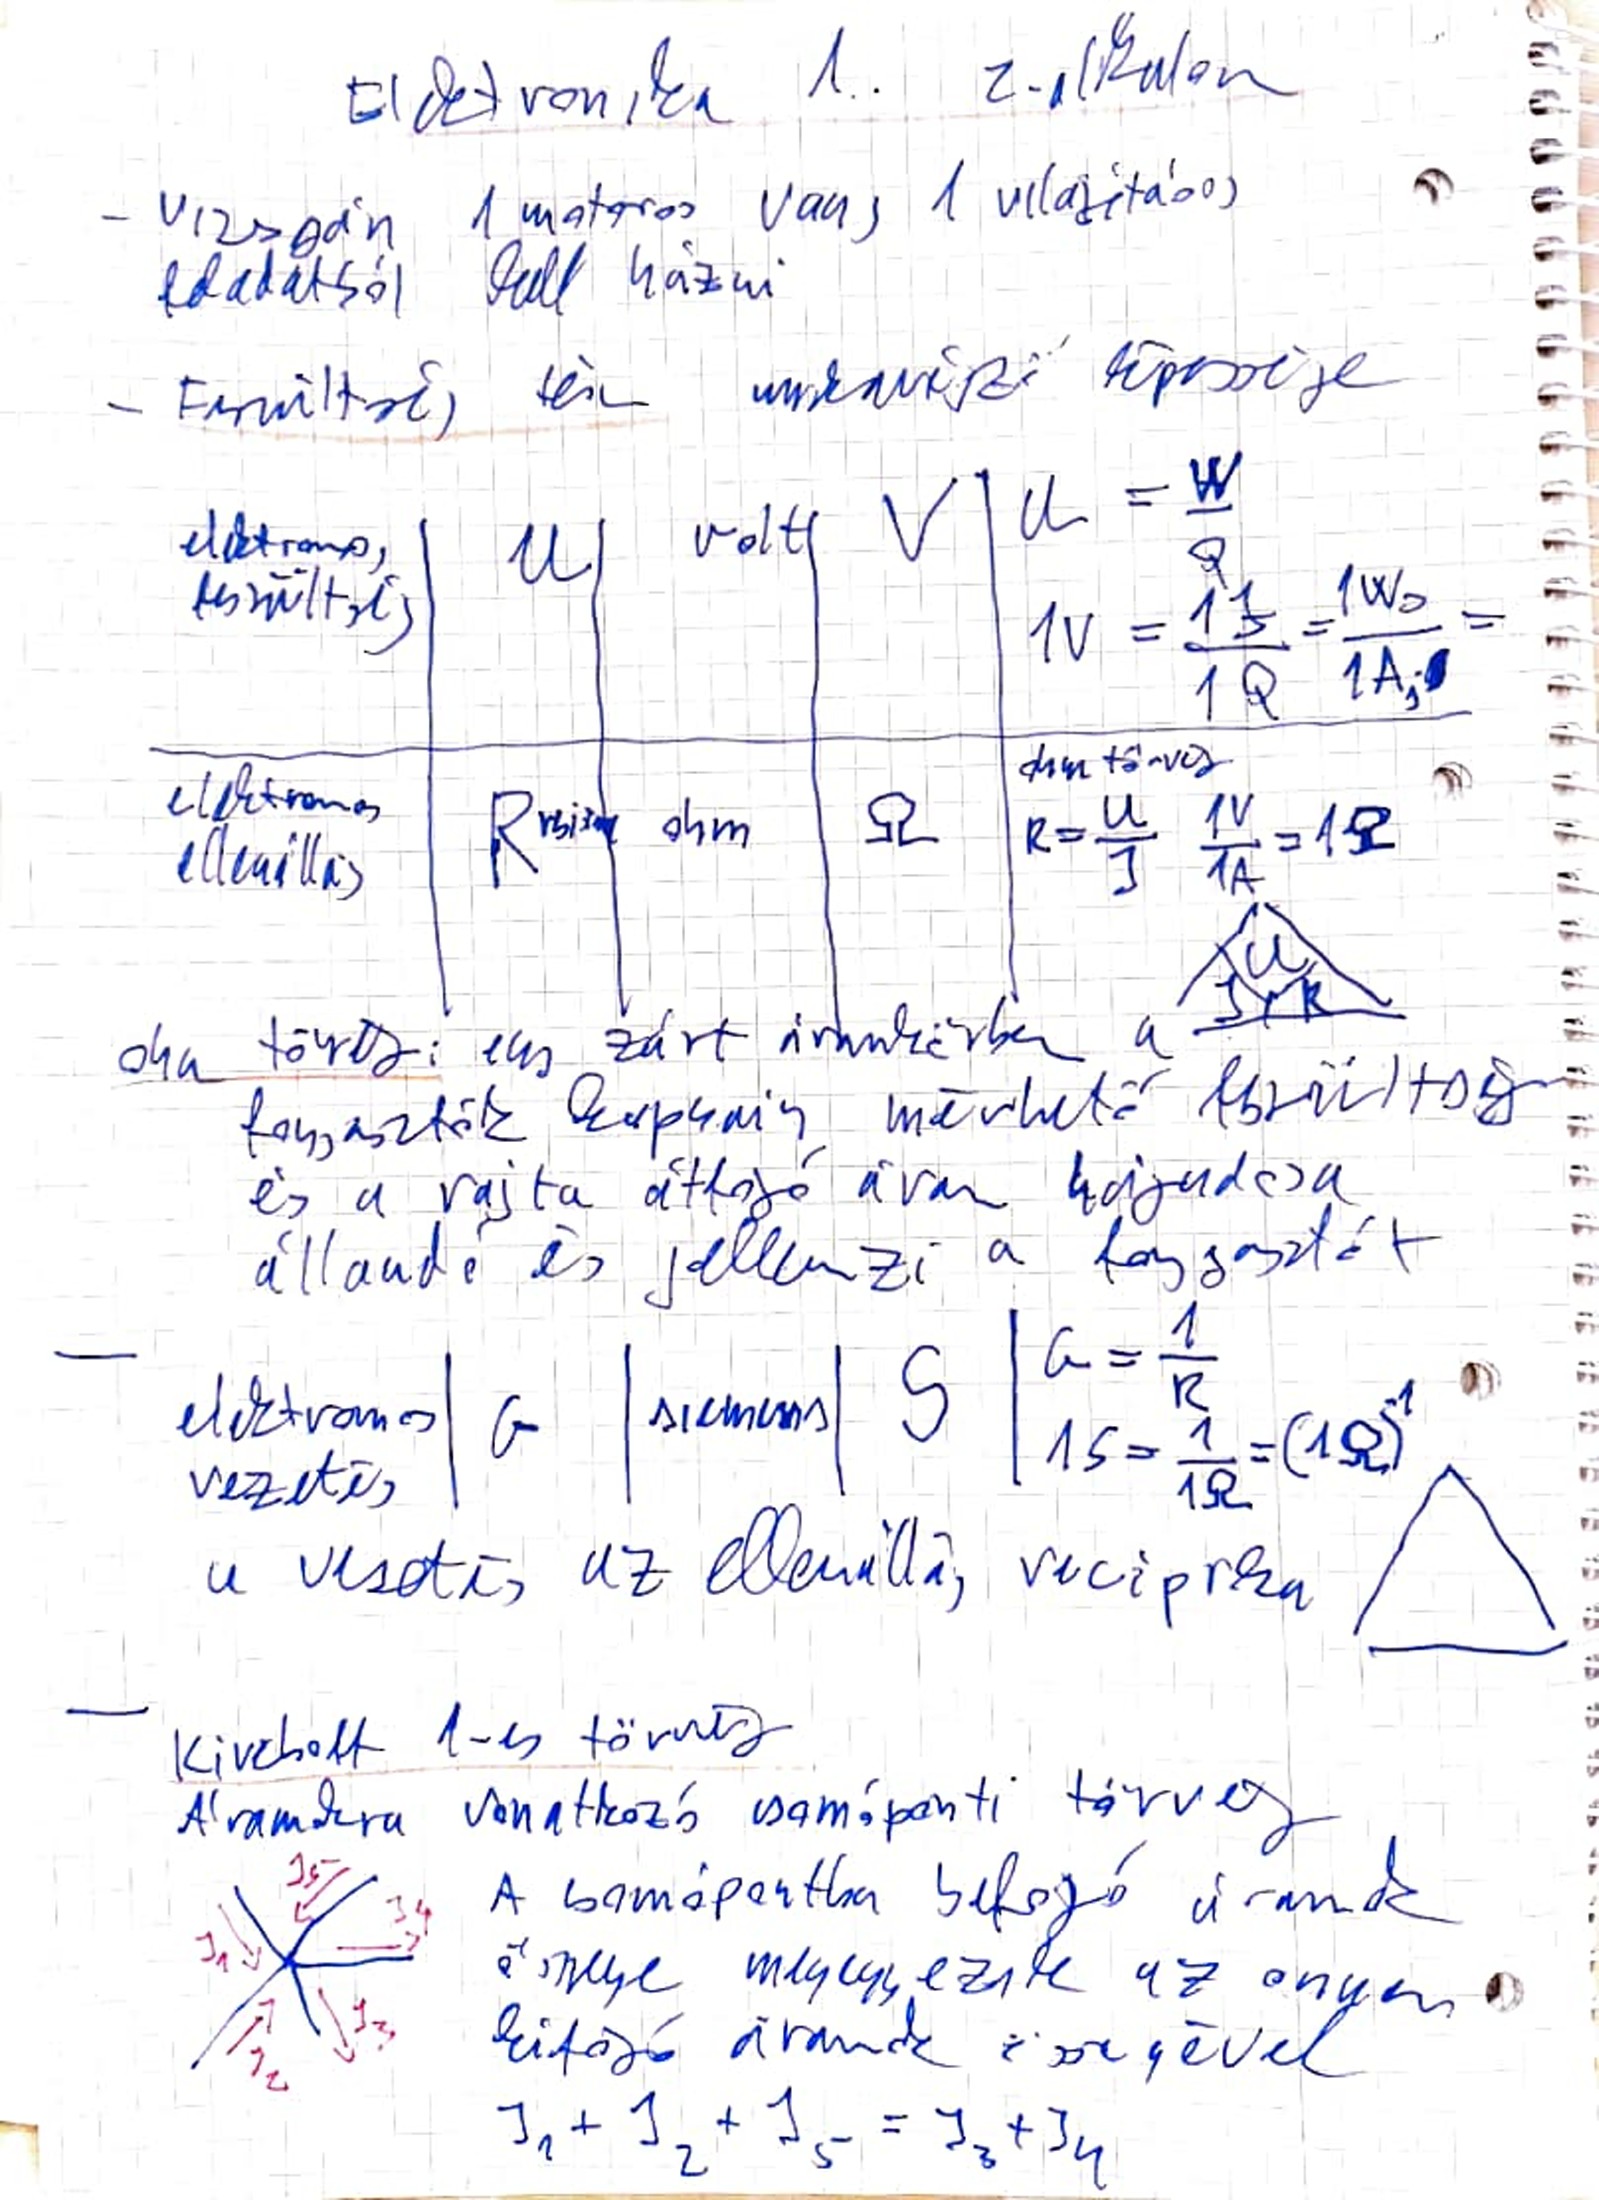 Elektronika 1.. 2. alkalom
- Vizsgán 1 motoros vagy 1 világításos
feladatból kell húzni
- Feszültség tér munkavégző képessége
elektromos feszültség | U | volt | V | U = W/Q
1V = 1J/1Q = 1Ws/1As =
elektromos ellenállás | R | ohm | Ω | ohm törvény
R = U/I 1V/1A = 1Ω
U
I R
ohm törvény: egy zárt áramkörben a
fogyasztók kapcsain mérhető feszültség
és a rajta átfolyó áram hányadosa
állandó és jellemzi a fogyasztót
elektromos vezetés | G | siemens | S | G = 1/R
1S = 1/1Ω = (1Ω)⁻¹
a vezetés az ellenállás reciproka
Kirchoff 1-es törvény
Áramokra vonatkozó csomóponti törvény
I5
I4
I1
I3
I2
A csomópontba befolyó áramok
összege megegyezik az onnan
kifolyó áramok összegével
I1 + I2 + I5 = I3 + I4